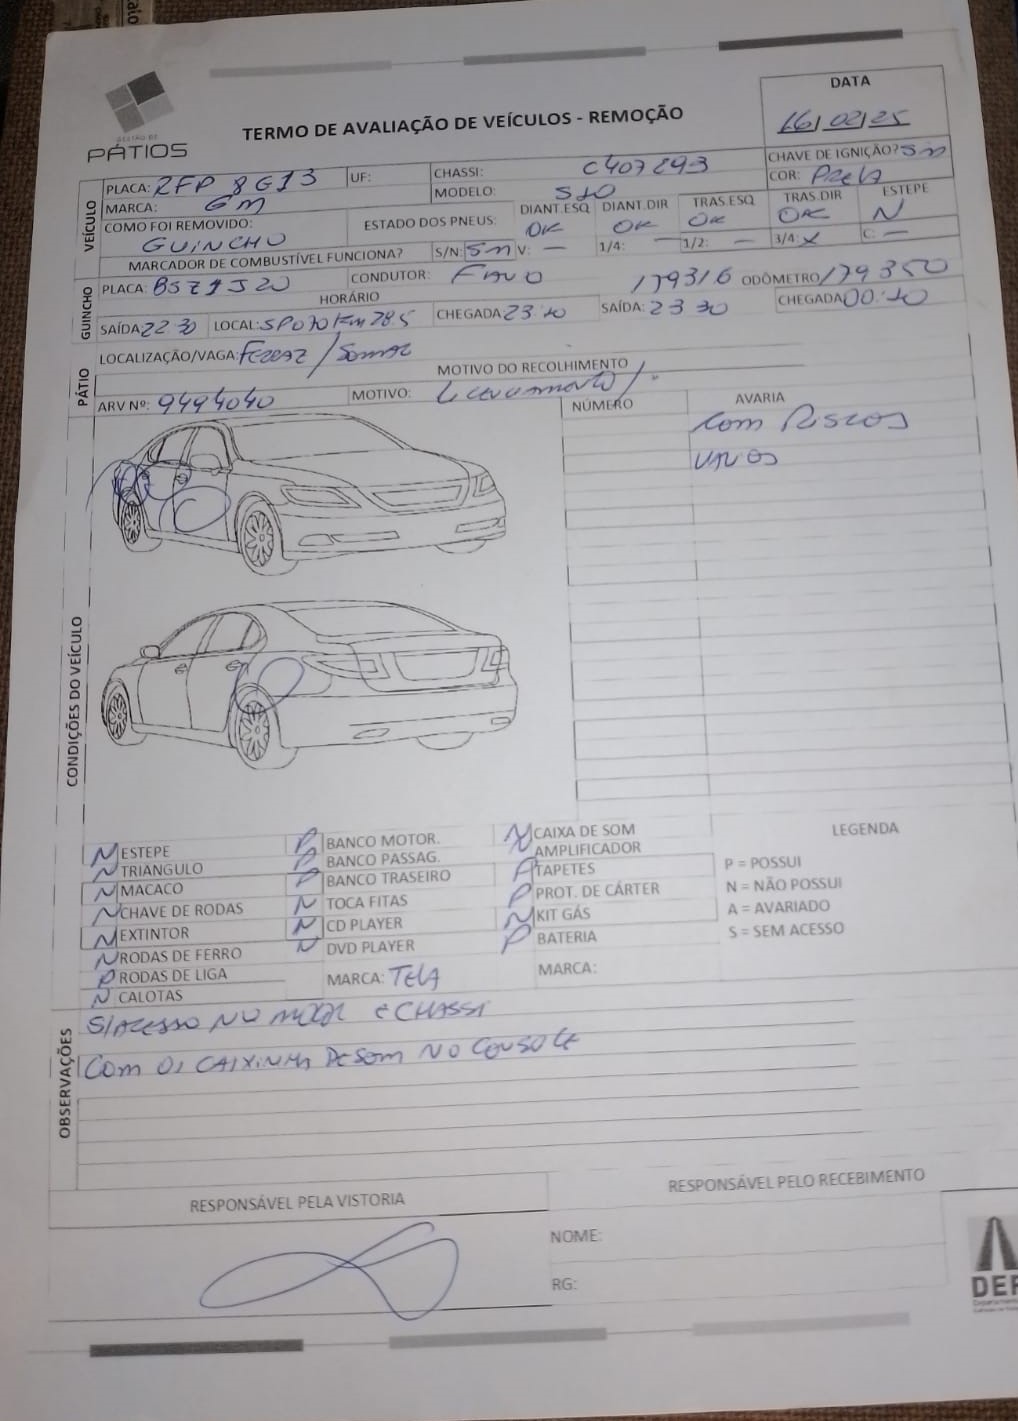 GESTÃO DE
PÁTIOS
TERMO DE AVALIAÇÃO DE VEÍCULOS - REMOÇÃO
DATA
16/02/25
VEÍCULO
PLACA: ZFP 8G13 UF: CHASSI: C407293 CHAVE DE IGNIÇÃO? Sm
MARCA: GM MODELO: S10 COR: Preta
COMO FOI REMOVIDO: GUINCHO ESTADO DOS PNEUS: DIANT.ESQ OK DIANT.DIR OK TRAS.ESQ OK TRAS.DIR OK ESTEPE N
MARCADOR DE COMBUSTÍVEL FUNCIONA? S/N: Sm V: — 1/4: — 1/2: — 3/4: x C: —
GUINCHO
PLACA: CONDUTOR: 179316 ODÔMETRO 179350
HORÁRIO
SAÍDA: 22 30 LOCAL: SP070 Km 28.5 CHEGADA 23:10 SAÍDA: 23 30 CHEGADA 00:10
PÁTIO
LOCALIZAÇÃO/VAGA: Ferraz /
MOTIVO DO RECOLHIMENTO
ARV Nº: 9494040 MOTIVO: Licenciamento/
CONDIÇÕES DO VEÍCULO
NÚMERO AVARIA
Com Riscos
N ESTEPE
N TRIANGULO
N MACACO
N CHAVE DE RODAS
N EXTINTOR
N RODAS DE FERRO
P RODAS DE LIGA
N CALOTAS
P BANCO MOTOR.
P BANCO PASSAG.
P BANCO TRASEIRO
N TOCA FITAS
N CD PLAYER
N DVD PLAYER
MARCA: TELA
N CAIXA DE SOM
N AMPLIFICADOR
TAPETES
P PROT. DE CÁRTER
N KIT GÁS
P BATERIA
MARCA:
LEGENDA
P = POSSUI
N = NÃO POSSUI
A = AVARIADO
S = SEM ACESSO
OBSERVAÇÕES
S/ACESSO NO MOTOR e CHASSI
COM 01 CAIXINHA DE SOM NO CONSOLE
RESPONSÁVEL PELA VISTORIA
RESPONSÁVEL PELO RECEBIMENTO
NOME:
RG: